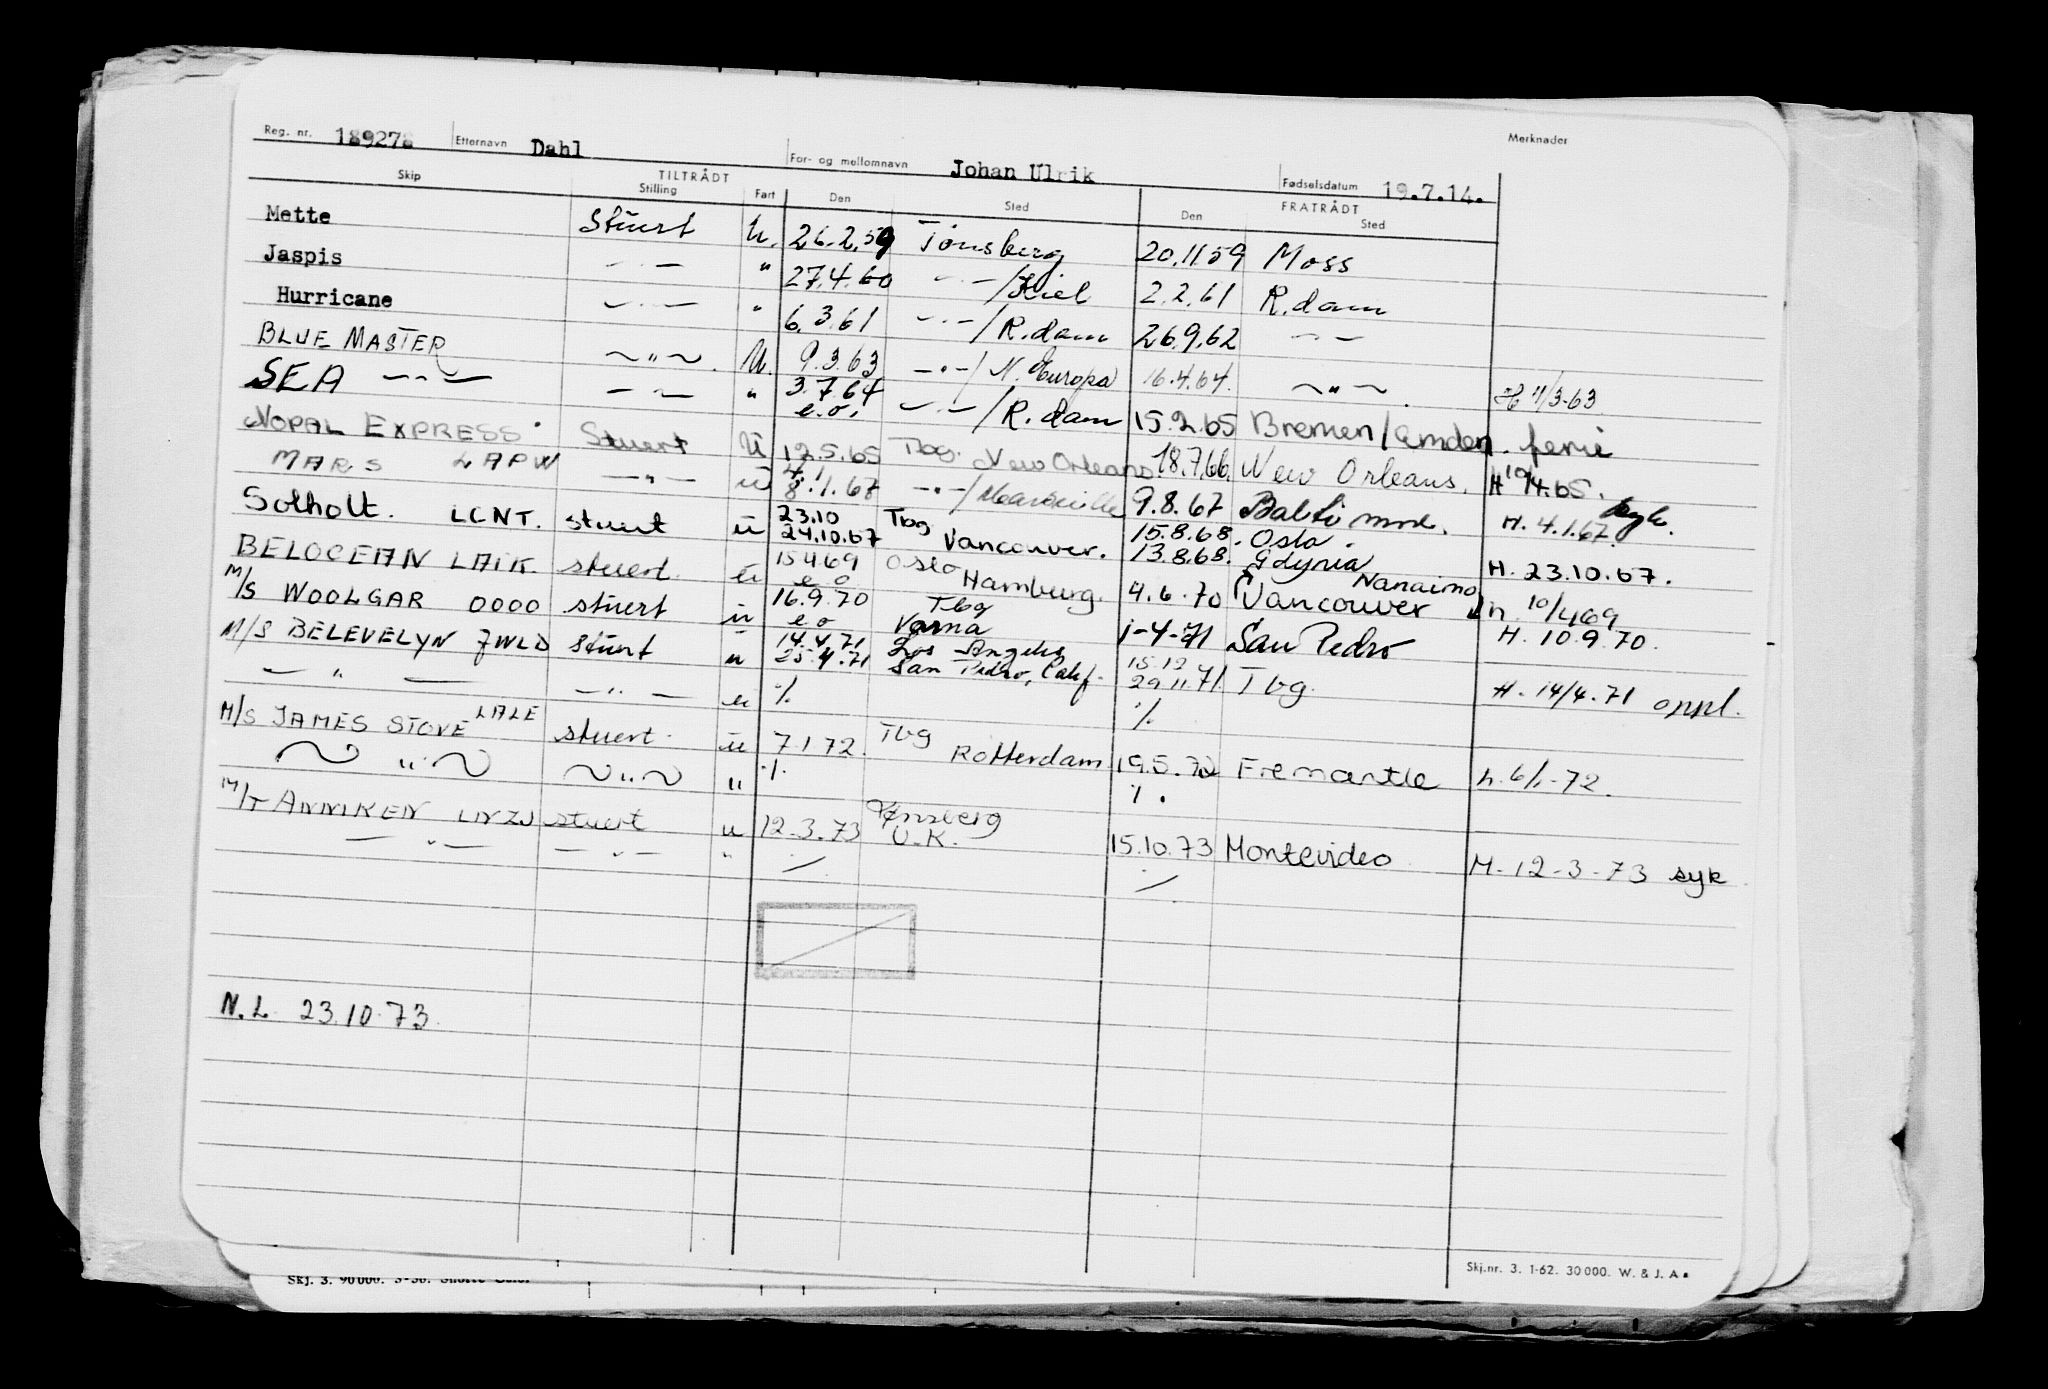 Reg. nr. 189278 Etternavn Dahl For- og mellomnavn Johan Ulrik Fødselsdatum 19.7.14. Merknader
TILTRÅDT FRATRÅDT
Skip Stilling Fart Den Sted Den Sted
Mette Stuert U. 26.2.59 Tønsberg 20.11.59 Moss
Jaspis — " — " 27.4.60 — " — / Kiel 2.2.61 R.dam
Hurricane — " — " 6.3.61 — " — / R.dam 26.9.62 — " —
BLUE MASTER ~ " ~ U. 9.3.63 — " — / N. Europa 16.4.64. ~ " ~ H 11/3-63
SEA — " — — " — " 3.7.64 e.o. — " — / R.dam 15.2.65 Bremen/Emden. ferie
NOPAL EXPRESS. Stuert U 12.5.65 Tbg. New Orleans 18.7.66. New Orleans. H 10/4.65.
MARS LAPW — " — u 4.1 8.1.67 — " — / Marseille 9.8.67 Baltimore. H. 4.1.67.
Solholt. LCNT. stuert u 23.10 24.10.67 Tbg Vancouver. 15.8.68. Oslo. 13.8.68. Gdynia H. 23.10.67.
BELOCEAN LAIK stuert u 15 4 69 e o Oslo Hamburg. 4.6.70 Vancouver Nanaimo h. 10/4 69
M/S WOOLGAR 0000 stuert u 16.9.70 e o Tbg Varna 1-4-71 San Pedro H. 10.9.70.
M/S BELEVELYN JWLD stuert u 14.4.71 25.4.71 Los Angeles San Pedro, Calif. 15.12 29 11 71. Tbg. H. 14/4.71 oppl.
— " — — " — u % %
M/S JAMES STOVE LALE stuert. u 7.1.72. Tbg Rotterdam 19.5.72 Fremantle h. 6/1-72.
~ " ~ ~ " ~ " % %.
M/T ANNIKEN LNZJ stuert u 12.3.73 Tønsberg U.K. 15.10.73 Montevideo M.-12-3-73 syk
— " — — " — " % %
N.L. 23.10.73.
Skj.nr. 3. 1-62. 30000. W. & J. A.
Skj. 3. 90000.